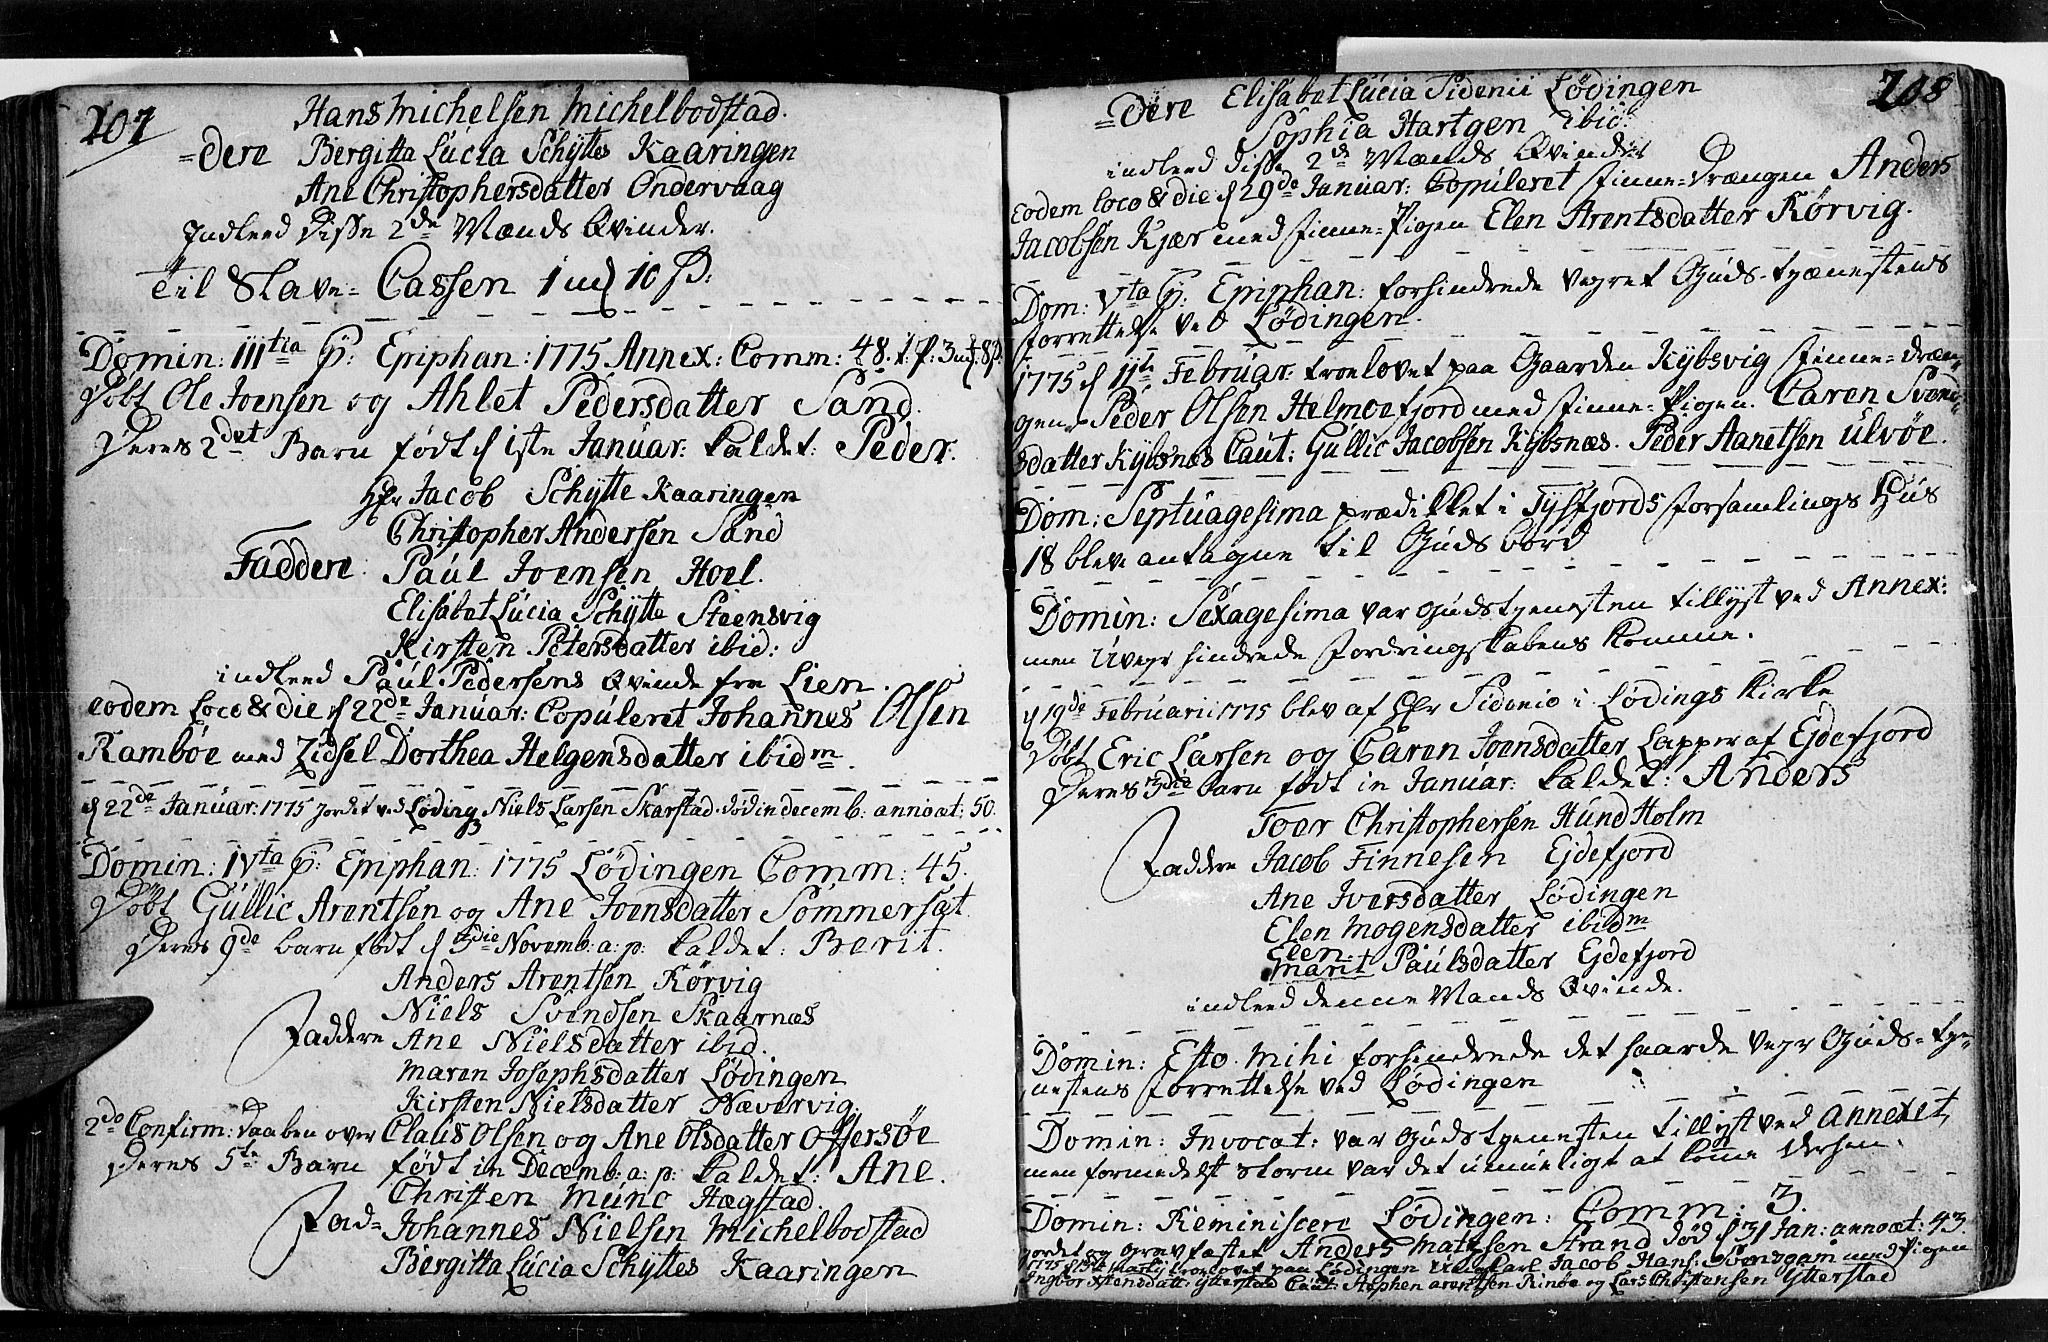 207
Hans Michelsen Michelbodstad.
=dere Bergitta Lúcia Schÿttes Kaaringen
Ane Christophersdatter Ondervaag
Indleed disse 2de Mænds Qvinder.
Til Slave= Cassen 1 m 10 s:
Domin: IIItia p: Epiphan: 1775 Annex: Comm: 48.
døbt Ole Joensen og Ahlet Pedersdatter Sand.
Deres 2det Barn født d 1ste Janúar: kaldet: Peder.
Hr Jacob Schÿtte Kaaringen
Christopher Andersen Sand
Faddere Paúl Joensen Hoel.
Elisabet Lúcia Schÿtte Steensvig
Kirsten Petersdatter ibid:
indleed Paúl Pedersens Qvinde fra Lien.
eodem loco & die d 22de Janúar: Copúleret Johannes Olsen
Rambøe med Zidsel Dorthea Helgensdatter ibidm.
d 22de Janúar: 1775 jordet ved Løding Niels Larsen Skarstad. død in decemb: anno æt: 50.
Domin: IVta p: Epiphan: 1775 Lødingen Comm: 45.
døbt Gúllic Arentsen og Ane Joensdatter Sommersæt.
Deres 9de barn født d Novemb: a: p: kaldet: Berit.
Anders Arentsen Kørvig
Niels Svendsen Skaarnæs
Faddere Ane Nielsdatter ibid.
Maren Josephsdatter Lødingen
Kirsten Nielsdatter Nævervig.
2do Confirm: daaben over Claus Olsen og Ane Olsdatter Offersøe
Deres 5te Barn født in Decemb: a: p: kaldet: Ane.
Christen Múnc Hægstad.
Fad= Johannes Nielsen Michelbodstad
Bergitta Lúcia Schÿttes Kaaringen
208
=dere Elisabet Lúcia Sidenii Lødingen
Sophia Hartgen ibid:
indleed disse 2de Mænds Qvinder
Eodem loco & die d 29de Janúar: Copúleret Finne=drængen Anders
Jacobsen Kjær med Finne=Pigen Elen Arentsdatter Kørvig.
Dom: Vta p: Epiphan: forhindrede Vegret Gúds=tjænestens
forrettelse ved Lødingen.
1775 d 11te Febrúar: troelovet paa Gaarden Kÿbsvig Finne=dræn=
gen Peder Olsen Helmoefjord med Finne=Pigen. Caren Svend=
sdatter Kÿbsnæs Caut: Gúllic Jacobsen Kÿbsnæs. Peder Aanetsen Ulvøe.
Dom: Septúagesima prædikket i Tÿsfjords Forsamlings Húus
18 blev antagne til Gúds bord
Domin: Sexagesima var Gúdstjenesten tillyst ved Annex:
men Uvejr hindrede Fordringskabens komme.
d 19de Febrúarii 1775 blev af Hr Sidenio i Lødings Kirke
døbt Eric Larsen og Caren Joensdatter Lapper af Ejdefjord
Deres 3die barn født in Janúar: kaldet: Anders
Toer Christophersen Húnd Holm
Faddere Jacob Finnesen Ejdefjord
Ane Iversdatter Lødingen
Elen Mogensdatter ibidm
Elen.
Marit Paúlsdatter Ejdefjord
indleed denne Mands Qvinde.
Domin: Esto. Mihi forhindrede det haarde Vejr Gúds=tje=
nestens forrettelse ved Lødingen
Domin: Invocat: var Gúdstjenesten tillyst ved Annexet,
men formedelst storm var det úmúeligt at komme dersen.
Domin: Reminiscere Lødingen: Comm: 3.
jordet og Gravfæstet Anders Matssen Strand død d 31 Jan: anno æt: 43.
1775 d Martij troelovet paa Lødingen Ungkarl Jacob Hans: med Pigen
Ingbor datt: Ÿtterstad Caut: Stephen Arentsen Rinøe og Lars Christensen Ÿtterstad